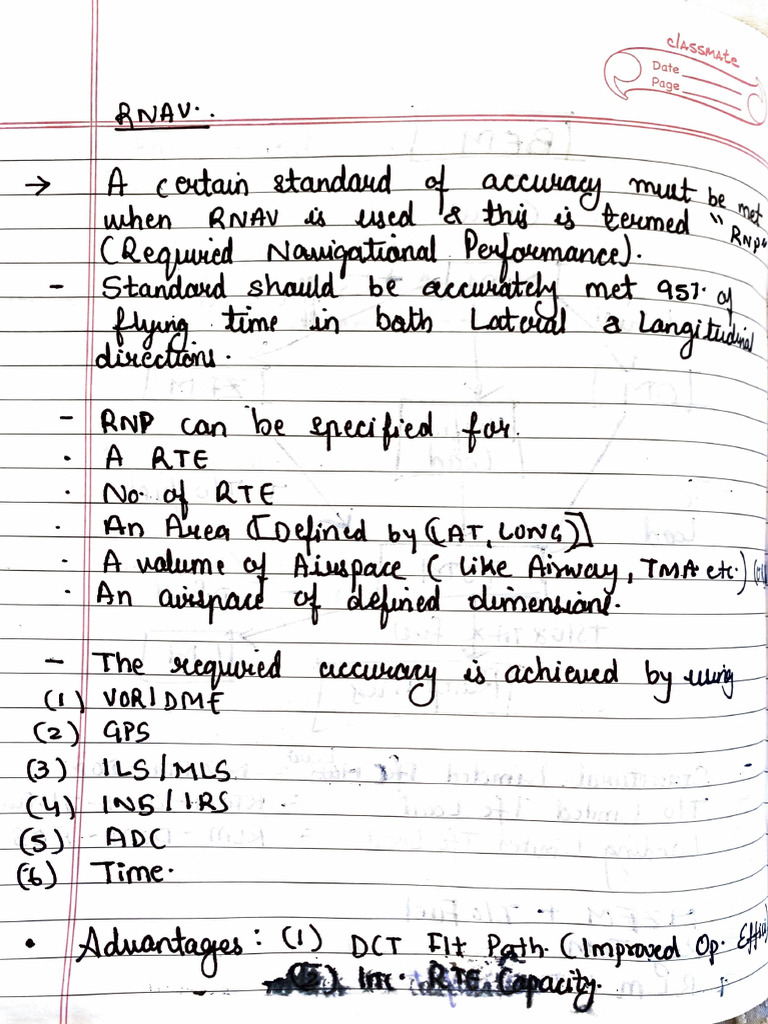 classmate
Date
Page
RNAV.
→ A certain standard of accuracy must be met
when RNAV is used & this is termed "RNP"
(Required Navigational Performance).
- Standard should be accurately met 95% of
flying time in both Lateral & Longitudinal
directions.
- RNP can be specified for.
· A RTE
· No. of RTE
· An Area [Defined by (LAT, LONG)]
· A volume of Airspace (like Airway, TMA etc.)
· An airspace of defined dimensions.
- The required accuracy is achieved by using
(1) VOR/DME
(2) GPS
(3) ILS/MLS
(4) INS/IRS
(5) ADC
(6) Time.
• Advantages: (1) DCT Flt Path. (Improved Op.
(2) Inc. RTE Capacity.